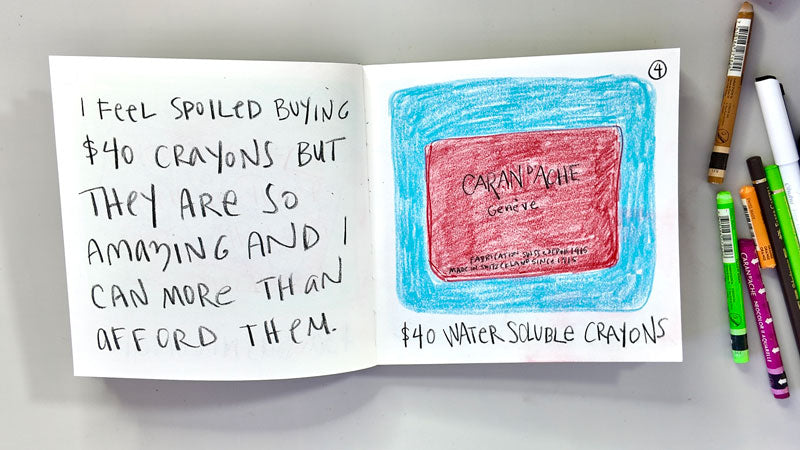 I FEEL SPOILED BUYING
$40 CRAYONS BUT
THEY ARE SO
AMAZING AND I
CAN MORE THAN
AFFORD THEM.
4
CARAN D'ACHE
Genève
FABRICATION
MADE IN SWITZERLAND SINCE
$40 WATER SOLUBLE CRAYONS
CARAN D'ACHE NEOCOLOR II AQUARELLE